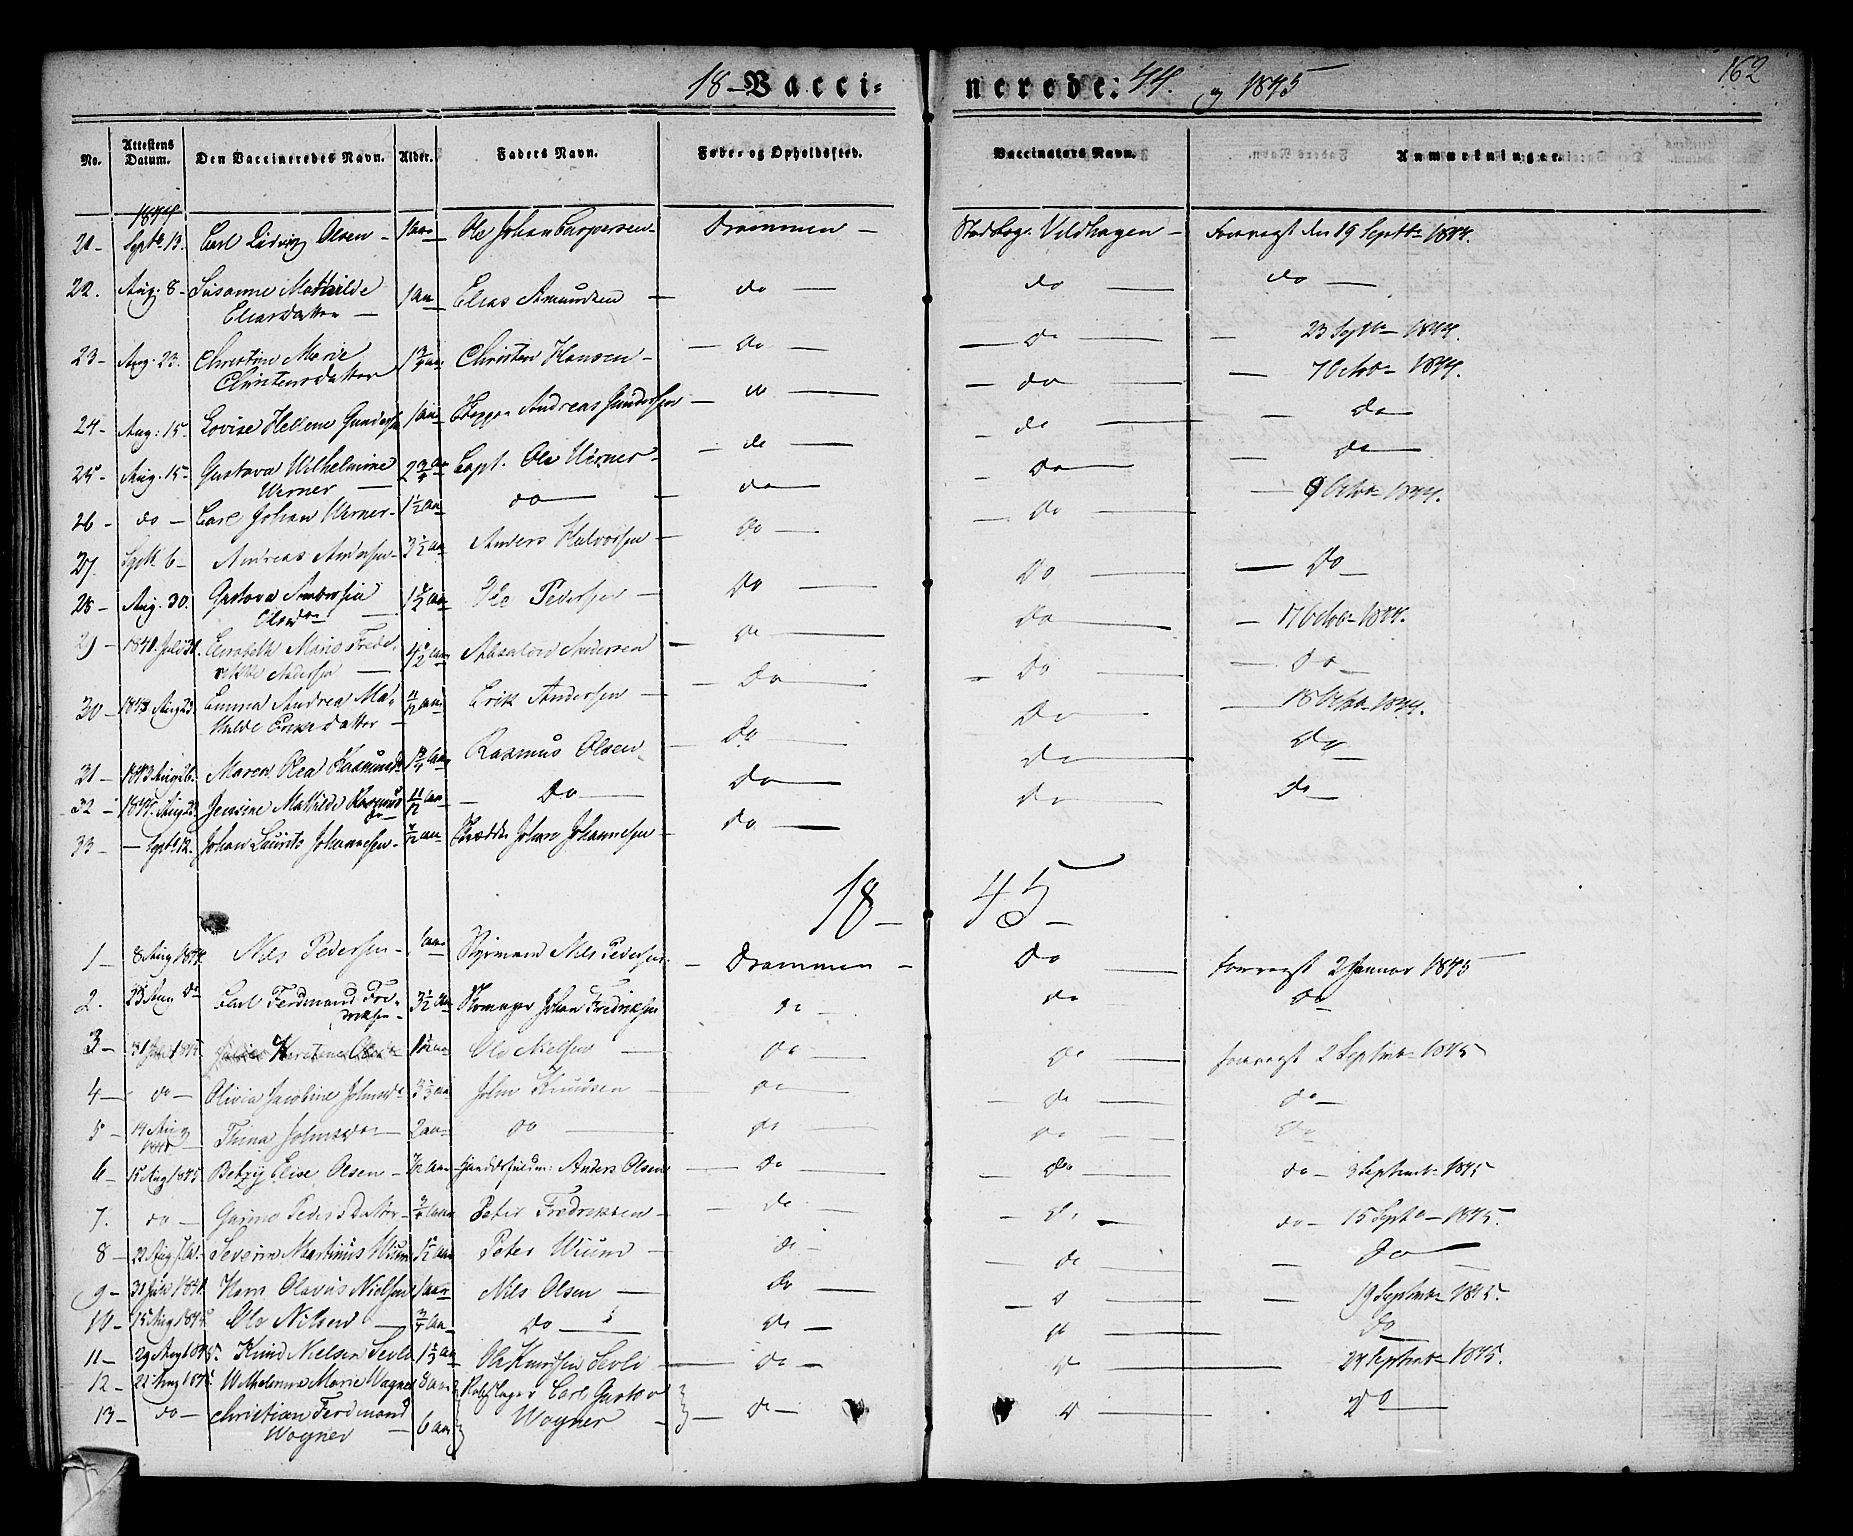 18 - Vacci- nerede: 44. og 1845 162
No. Attestens Datum. Den Vaccineredes Navn. Alder. Faders Navn. Føde- og Opholdssted. Vaccinateurs Navn. Anmærkninger.
1844
21 - Septb 13. Carl Ludvig Olsen - 1 aar Ole Johan Caspersen - Drammen - Vildhagen - Forevist den 19 Septbr 1844.
22. Aug: 8 - Susanne Mathilde 1 aar Elias Amundsen - do - do - do -
Eliasdatter -
23 - Aug: 23. Christine Marie 1 3/4 aar Christen Hansen - do - - do - - 23 Septbr 1844.
Christensdatter
24 - Aug: 15 - Lovise Hellene Gunders 1 aar Andreas Gundersen - do - - do - - 7 Octbr 1844.
25 - Aug: 15 - Gustava Wilhelmine 2 3/4 aar Capt. Ole Werner - do - - do - - do -
Werner -
26 - do - Carl Johan Werner - 1 1/2 aar do - - do - - do - - do -
27. Septb 6 - Andreas Andersen - 3 1/2 aar Anders Halvorsen - do - - do - - 9 Octbr 1844.
28 - Aug. 30. Gustava Ambrosia 1 1/2 aar Ole Pedersen - do - do - - do -
Olsdr -
29) 1841 Juli 31. Elisabeth Marie Frede- 4 1/2 aar Absalon Andersen - do - do - - 17 Octbr 1844.
rikke Andersen -
30 - 1843 Aug 23. Emma Andrea Ma- 11/12 aar Erik Andersen - do - - do - - do -
thilde Eriksdatter -
31 - 1843 Aug 26. Maren Olea Rasmusd Rasmus Olsen - do - do - - 18 Octbr 1844.
32 - 1844 Aug 23 Jensine Mathilde Rasmus 11/12 aar - do - do - do - do -
dr -
33 - - Septb 12. Johan Laurits Johannesen - 7/12 aar Johan Johannesen - do - do - do -
18 - 45 -
1 - 8 Aug 1844. Nils Pedersen - 1 aar Styrmand Nils Pedersen - Drammen - do - Forevist 2 Januar 1845
2. 23 Aug do Carl Ferdinand Fre- 3 1/2 aar Johan Fredriksen do - do - do
driksen -
3 - 31 Juli 1845. Kirstine Ole Nielsen - do - do - forevist 2 Septmbr 1845
4 - do - Olivia Jacobine Johnsdr 3 1/3 aar John Knudsen - do - do - do -
5 - 14 Aug Thina Johnsdr - 2 aar do - do - do - do
6 - 15 Aug 1845 Betzy Elise Olsen - 7/12 aar Anders Olsen - do - do - do - 3 Septmbr 1845
7. do - Peders Datter - 3/4 aar Peter Fredriksen - - do - - do - do - 15 Septbr - 1845.
8 - 22 Aug Severin Martinus Wium 1 1/2 aar Peter Wium - do - - do - - do -
9 - 31 Juli 1844. Hans Olavus Nielsen 1 aar Nils Olsen - do - - do - - 19 Septmbr 1845.
10 - 15 Aug 1845 Ole Nilsen - 3/4 aar do - do - do - do
11 - 29 Aug 1845. Knud Nielsen Sevle 1 1/3 aar Ole Knudsen Sevle - - do - do - 24 Septmbr 1845.
12 - 22 Aug 1845 Wilhelmine Marie Wagner 8 aar Rebslager Carl Gustav
13 - do - Christian Ferdinand 6 aar Wagner - - do - do - do -
Wagner -